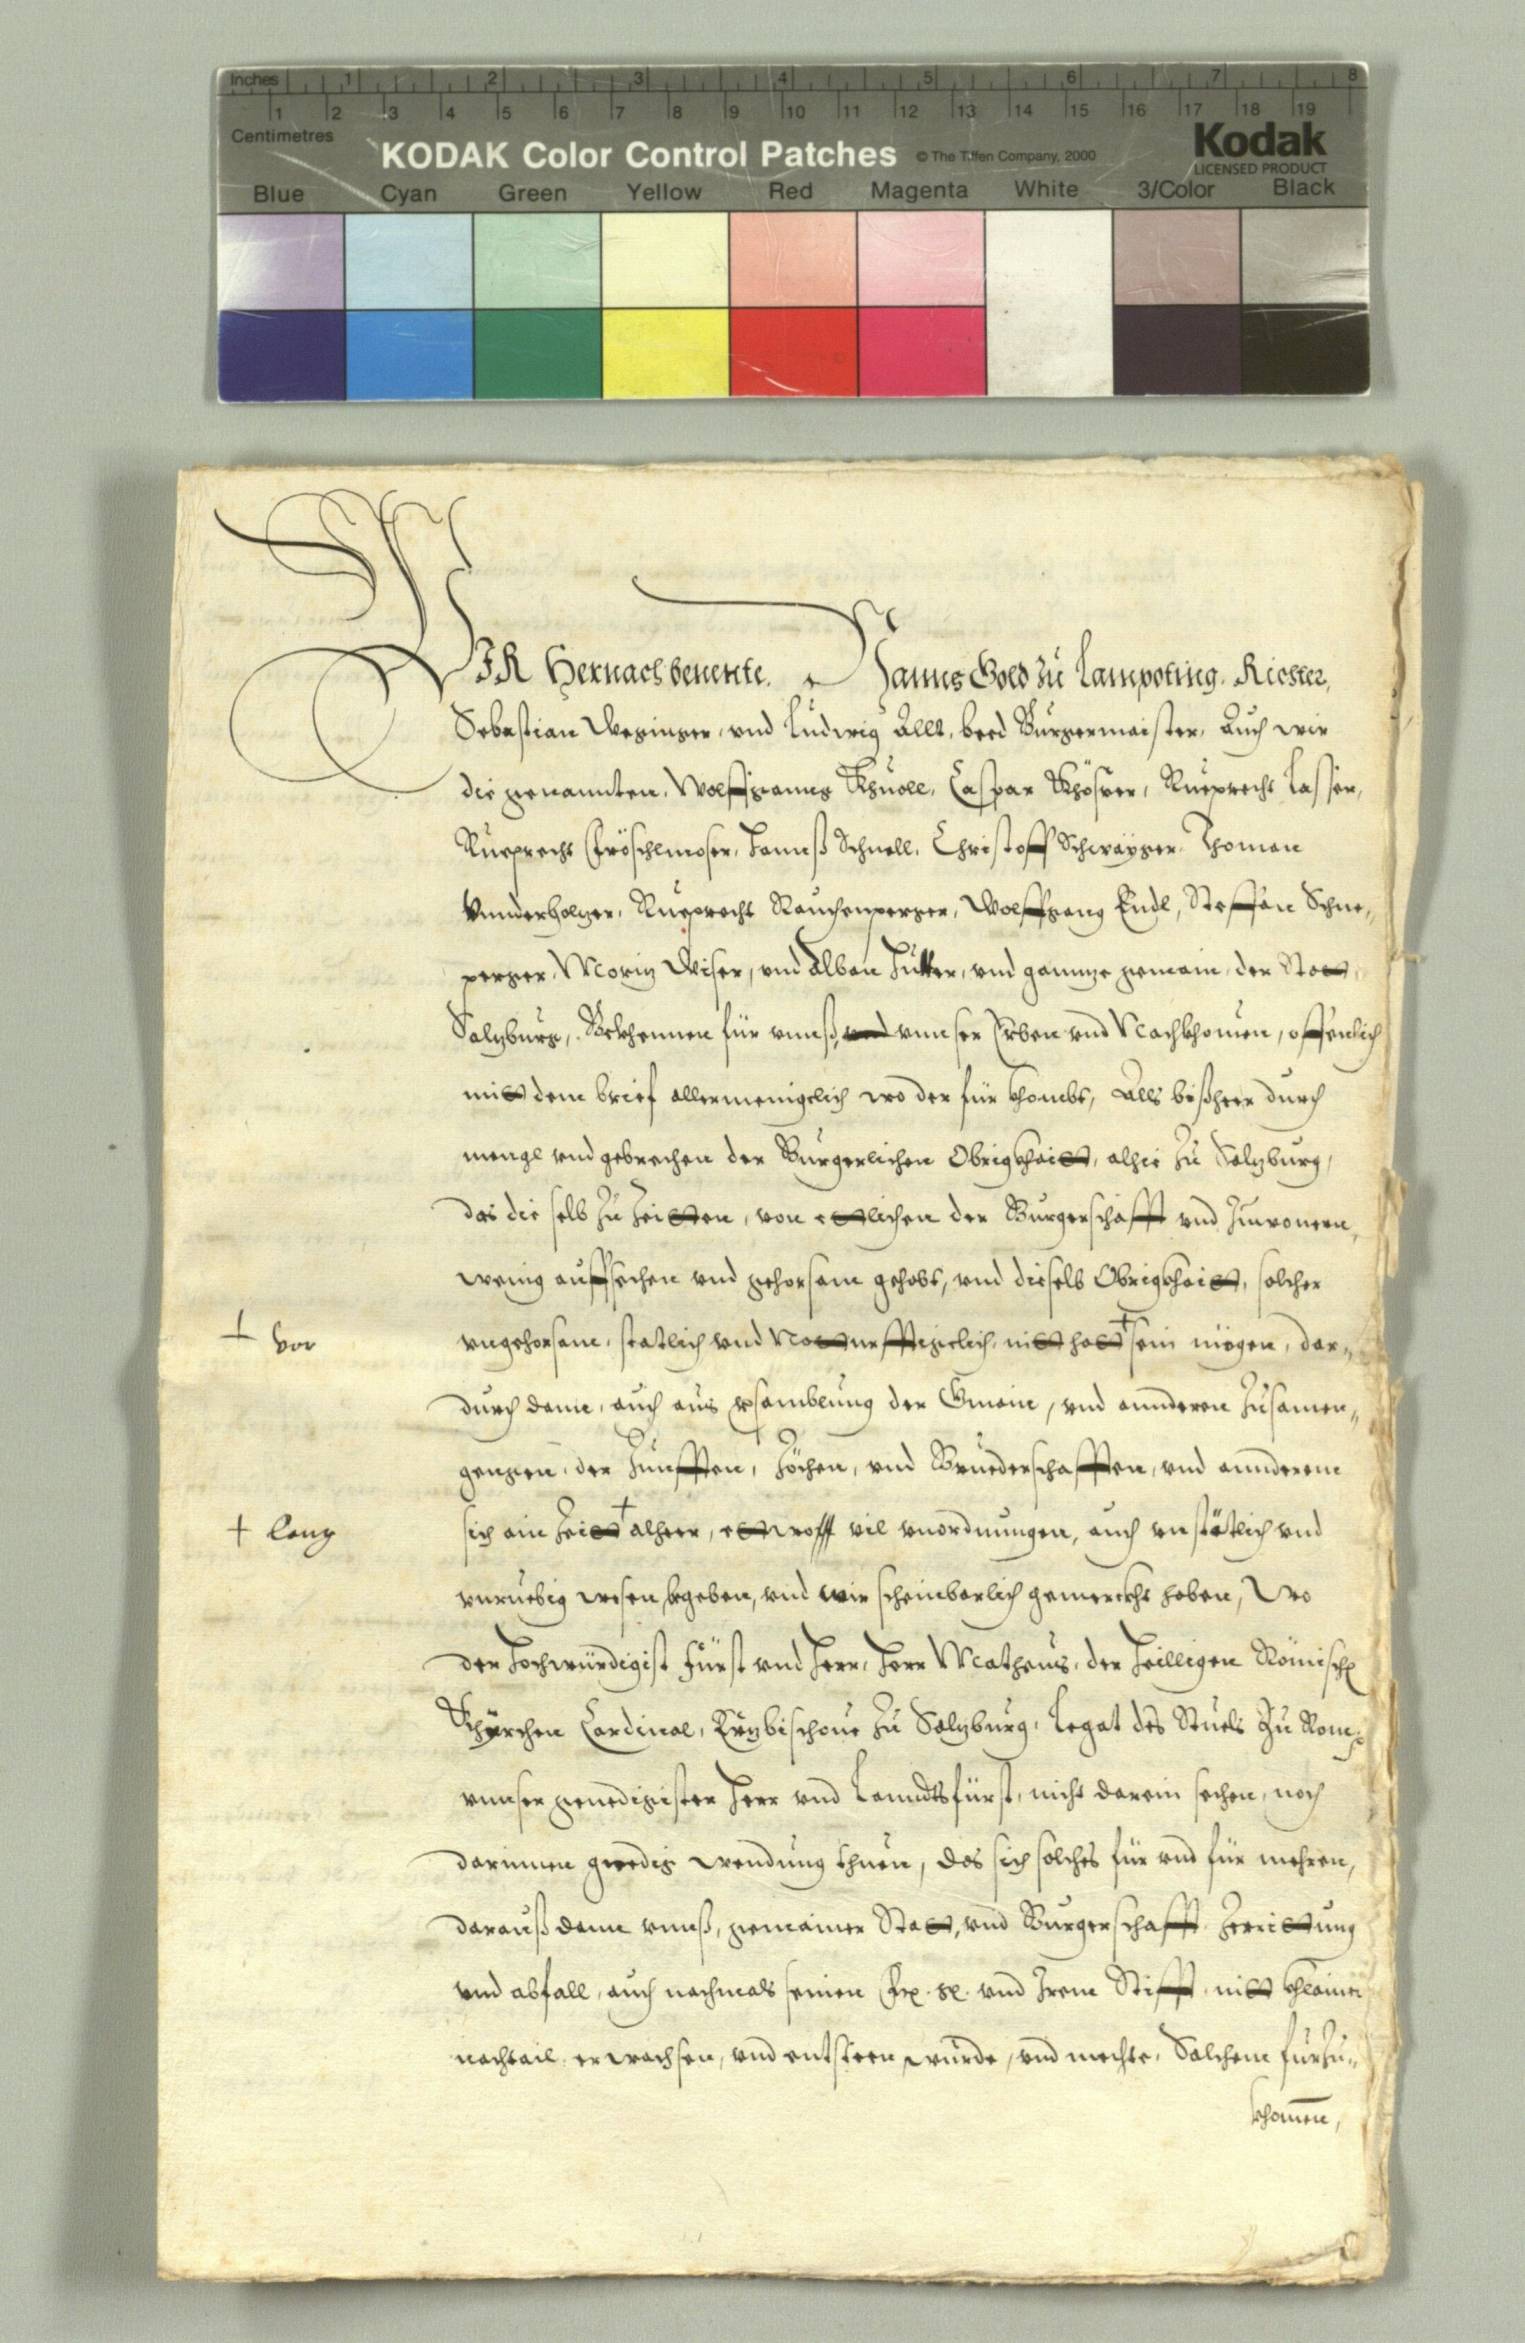 Inches 1 2 3 4 5 6 7 8
1 2 3 4 5 6 7 8 9 10 11 12 13 14 15 16 17 18 19
Centimetres
KODAK Color Control Patches © The Tiffen Company, 2000 Kodak
LICENSED PRODUCT
Blue Cyan Green Yellow Red Magenta White 3/Color Black
WIR Hernachbenente. Hanns Gold zu Lampoting. Richter,
Sebastian Waginger, vnd Ludwig Allt, beed Burgermaister, Auch wir
die genannten, Wolfgang Khuoll, Caspar Khöser, Rueprecht Lasser,
Rueprecht Fröschlmoser, Hanns Schnell, Christoff Schwayger, Thoman
Vnnderholzer, Rueprecht Rauchenperger, Wolffgang Endl, Steffan Schne„
perger, Moriz Wiser, vnd Alban Hutter, vnd gannze gemain, der Stat
Salzburg, Bekhennen für vnnß, vnd vnnser Erben vnd Nachkhomen, offenlich
mit dem brief allermenigclich wo der für khombt, Alls bißheer durch
mengl vnd gebrechen der Burgerlichen Obrigkhait, alhie zu Salzburg,
das die selb zu Zeitten, von etlichen der Burgerschafft vnd Inwonern,
wenig auffsechen vnd gehorsam gehabt, vnd dieselb Obrigkhait, solcher
┴ vor
vngehorsam, statlich vnd Notturfftigclich, nit hat + sein mögen, dar„
durch dann, auch aus versamblung der Gmain, vnd annderen zusamen„
gengen, der Zunfften, Zöchen, vnd Bruederschafften, vnd annderem
+ lang
sich ain Zeit + alheer, etwoff vil vnordnungen, auch vnstätlich vnd
vnruebig wesen begeben, vnd wir scheinbarlich gemerckht haben, Wo
der Hochwürdigist Fürst vnd Herr, Herr Matheus, der Heilligen Römisch
Khyrchen Cardinal, Erzbischoue zu Salzburg, Legat des Stuels zu Rom,
vnnser genedigister Herr vnd Lanndtsfürst, nicht darein sechen, noch
darinnen genedig wendung thuen, das sich solches für vnd für mehren,
darauß dann vnnß, gemainer Stat, vnd Burgerschafft Zerrittung
vnd abfall, auch nachmals seinen Frl. gl. vnd Irem Stifft, nit khlainer
nachtail erwachsen, vnd entsteen wurde, vnd mechte, Solchem fürzu„
khomen,